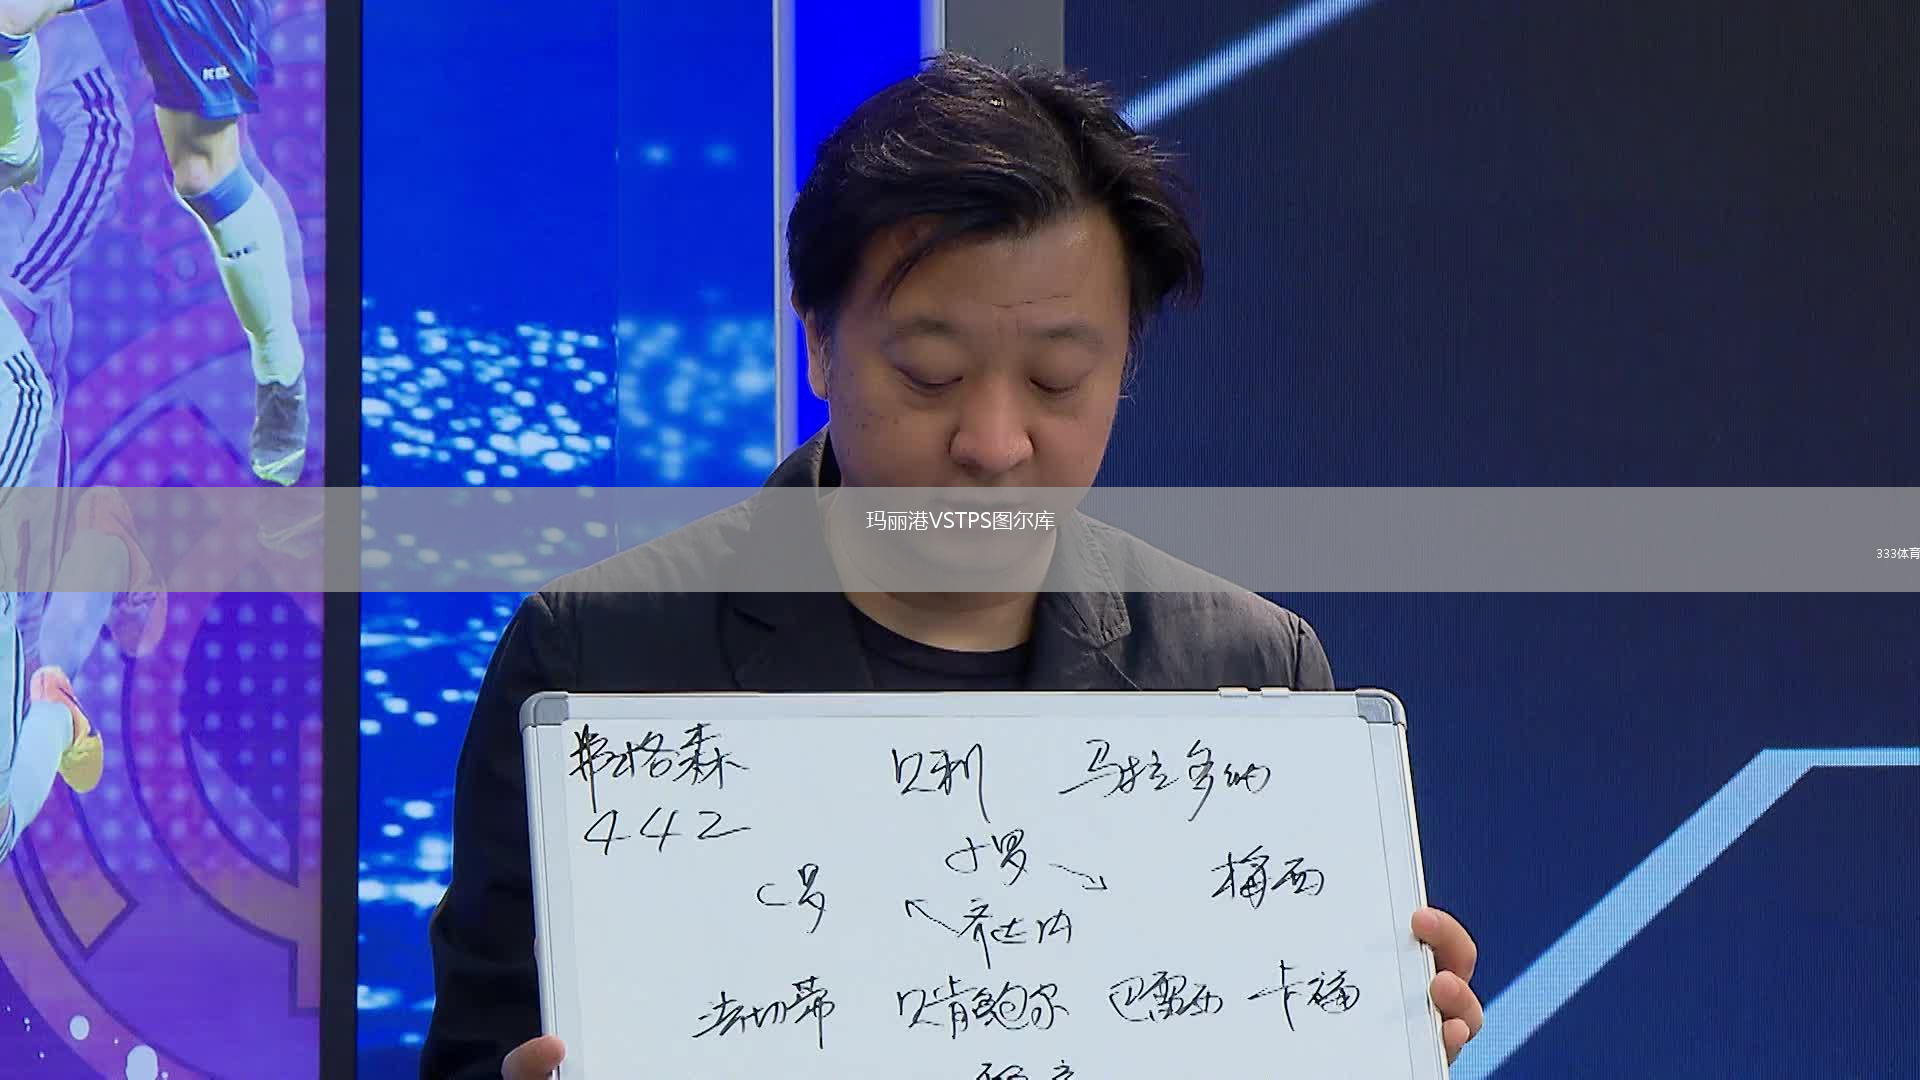 KEL
玛丽港VSTPS图尔库
333体育
弗格森 贝利 马拉多纳
442
小罗
C罗 梅西
齐达内
法切蒂 贝肯鲍尔 巴雷西 卡福